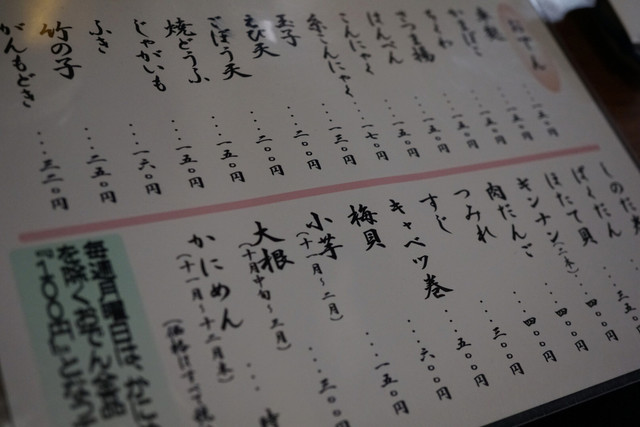 おでん
車麩…一五〇円
かまぼこ…一五〇円
ちくわ…一五〇円
さつま揚…一五〇円
はんぺん…一五〇円
こんにゃく…一五〇円
糸こんにゃく…一七〇円
玉子…一三〇円
えび天…二〇〇円
ごぼう天…二〇〇円
焼どうふ…一五〇円
じゃがいも…一五〇円
ふき…一六〇円
竹の子…二五〇円
がんもどき…三二〇円
しのだ
ばくだん
ほたて貝
ギンナン(二本)
肉だんご…四〇〇円
つみれ…四〇〇円
すじ…三〇〇円
キャベツ巻…五〇〇円
梅貝…六〇〇円
小芋…一五〇円
(十一月〜二月)
大根…三〇〇円
(十月中旬〜三月)
かにめん…時
(十一月〜十二月末)
(価格はすべて税
毎週月曜日は、かに
を除くおでん全品
『100円』となっ